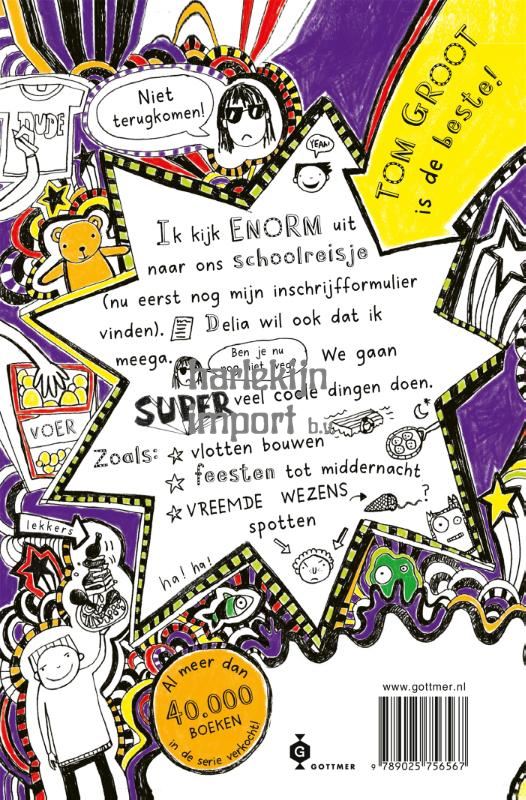 DUDE
Niet
terugkomen!
TOM GROOT
is de beste!
YEAH!
Ik kijk ENORM uit
naar ons schoolreisje
(nu eerst nog mijn inschrijfformulier
vinden). Delia wil ook dat ik
meega. Ben je nu
nog niet weg? We gaan
SUPER veel coole dingen doen.
harlekijn
import b.v.
VOER
Zoals: vlotten bouwen
feesten tot middernacht
VREEMDE WEZENS ?
spotten
lekkers
ha! ha!
Al meer dan
40.000
BOEKEN
in de serie verkocht!
www.gottmer.nl
G
GOTTMER
9 789025 756567